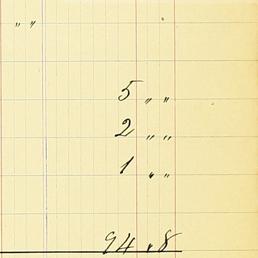 " "
5 " "
2 " "
1 " "
94 " 8